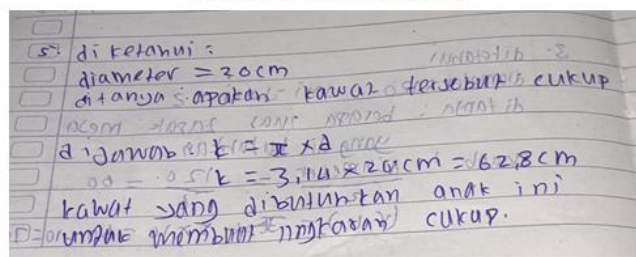 5. diketahui :
diameter = 20cm
ditanya : apakah kawat tersebut cukup
dijawab k = π x d
k = 3,14 x 20cm = 62,8 cm
kawat yang dibutuhkan anak ini
untuk membuat lingkaran cukup.